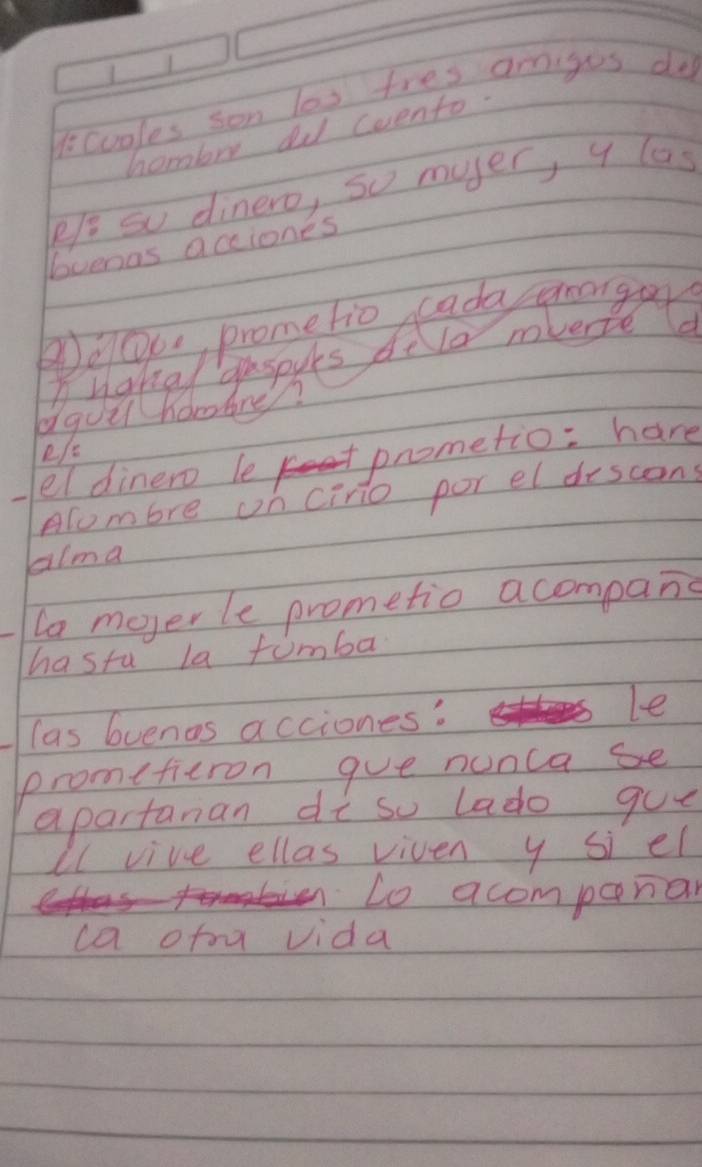 1: cuales son los tres amigos del
hombre del cuento.
R/: su dinero, su muger, y las
buenas acciones
2) ¿Que prometio cada amigo
despues de la muerte d
aquel hombre?
R/:
- el dinero le prometio: hare
Alombre un cirio por el descans
alma
- la mojer le prometio acompaña
hasta la tomba
- las buenas acciones: le
prometieron que nunca se
apartarian de su lado que
el vive ellas viven y si el
lo acompañar
la otra vida